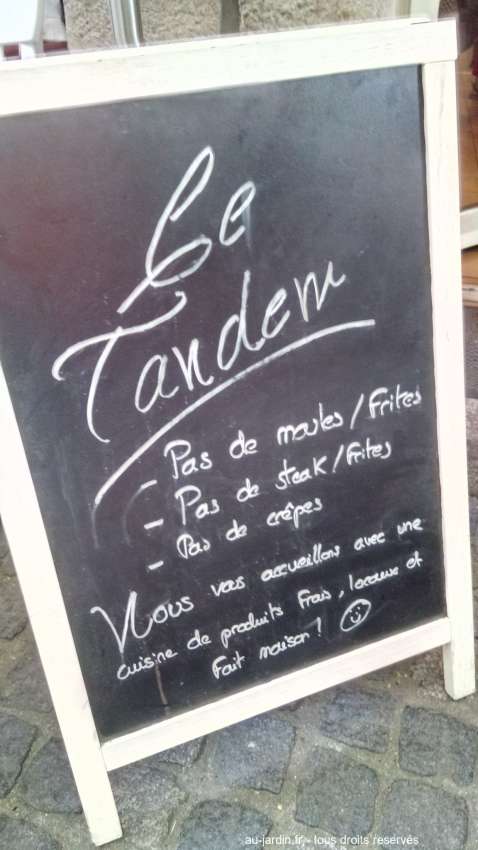 Le
Tandem
- Pas de moules/frites
- Pas de steak/frites
- Pas de crêpes
Nous vous accueillons avec une
cuisine de produits frais, locaux et
fait maison! ☺
au-jardin.fr - tous droits reservés